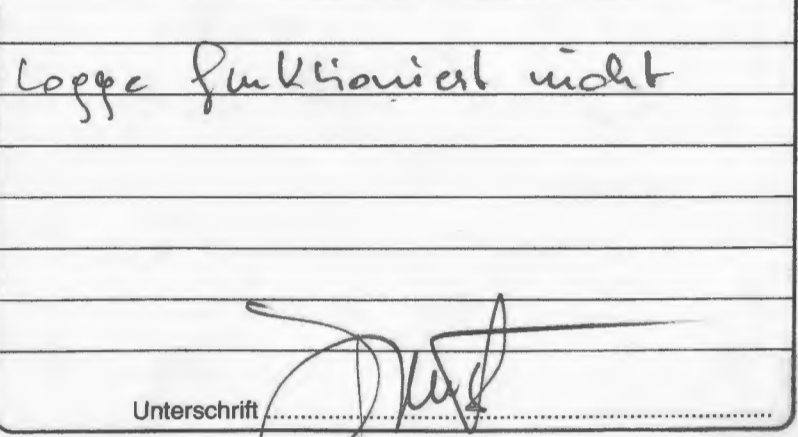 Logge funktioniert nicht
Unterschrift